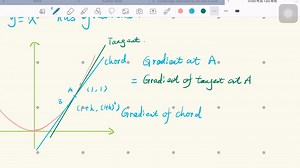 y=x² has g
Tangent
chord Gradient at A
= Gradient of tangent at A
A (1,1)
B
(1+h, (1+h)²) Gradient of chord